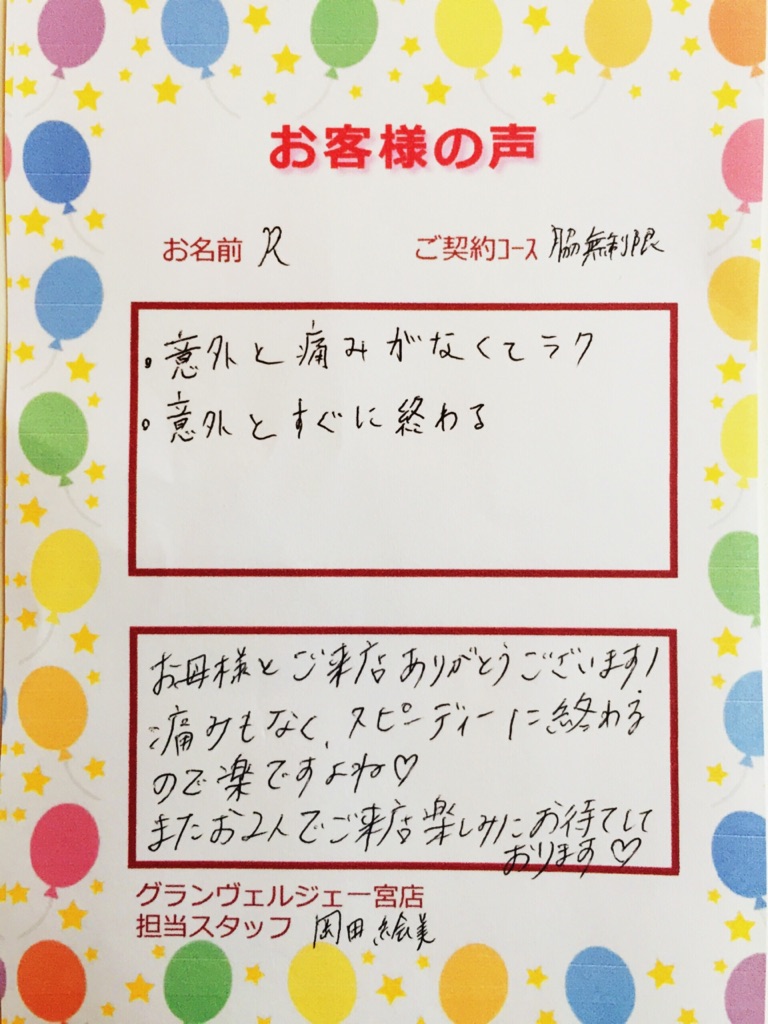 お客様の声
お名前 R
ご契約コース 脇無制限
。意外と痛みがなくてラク
。意外とすぐに終わる
お母様とご来店ありがとうございます!
痛みもなく、スピーディーに終わる
ので楽ですよね♡
またお2人でご来店楽しみにお待てして
おります♡
グランヴェルジェ一宮店
担当スタッフ 岡田絵美